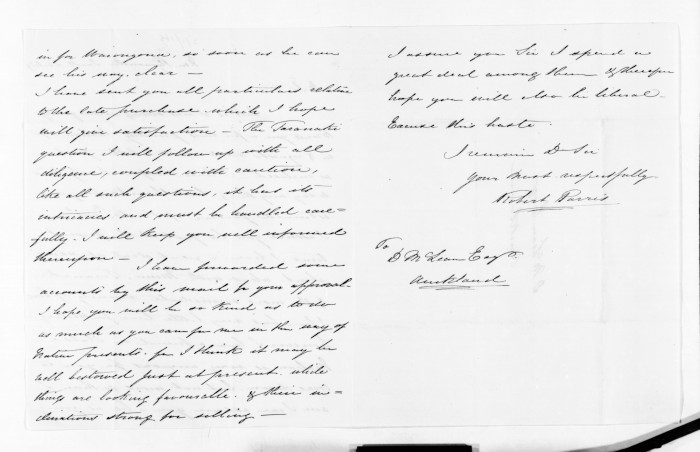 in for Waiongona, so soon as he can
see his way clear —
I have sent you all particulars relative
to the late purchase which I hope
will give satisfaction — The Taranaki
question I will follow up with all
diligence, coupled with caution,
like all such questions, it has its
intricacies and must be handled care=
fully. I will keep you well informed
thereupon — I have forwarded some
accounts by this mail for your approval.
I hope you will be so kind as to do
as much as you can for me in the way of
Native presents. for I think it may be
well bestowed just at present. while
things are looking favourable. & their in=
clinations strong for selling —
I assure you Sir I spend a
great deal among them & therefore
hope you will also be liberal.
Excuse this haste.
I remain D Sir
Your most respectfully
Robert Parris
To
D McLean Esqr
Auckland